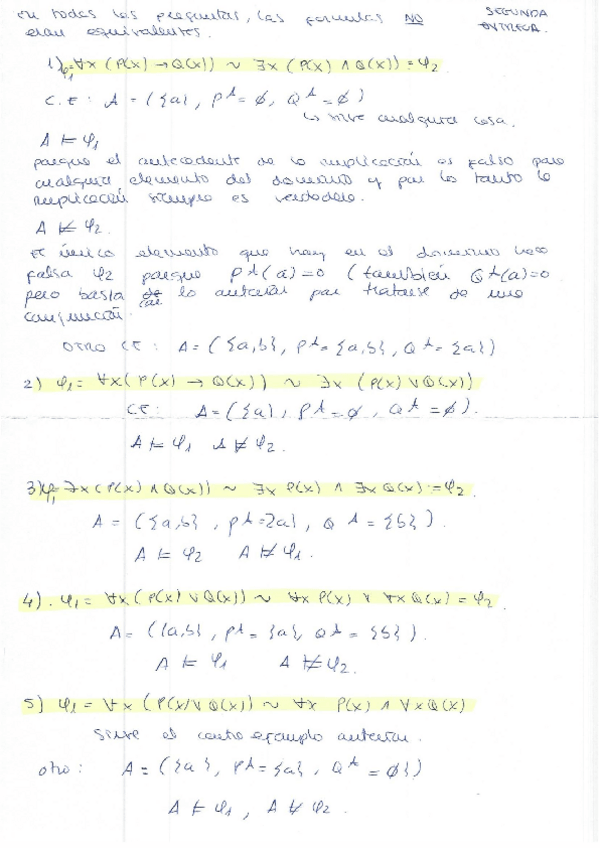 en todas las preguntas, las formulas NO
eran equivalentes.
SEGUNDA
ENTREGA.
1) φ₁=∀x (P(x) → Q(x)) ~ ∃x (P(x) ∧ Q(x)) = φ₂
C.E : A = ({a}, Pᴬ = ∅, Qᴬ = ∅)
↳ sirve cualquier cosa.
A ⊨ φ₁
porque el antecedente de la implicación es falso para
cualquier elemento del dominio y por lo tanto la
implicación siempre es verdadera.
A ⊭ φ₂.
El único elemento que hay en el dominio hace
falsa φ₂ porque Pᴬ(a)=0 (también Qᴬ(a)=0
pero basta con lo anterior por tratarse de una
conjunción.
OTRO CE : A = ({a,b}, Pᴬ = {a,b}, Qᴬ = {a})
2) φ₁ = ∀x( P(x) → Q(x)) ~ ∃x (P(x) ∨ Q(x))
CE: A = ({a}, Pᴬ = ∅, Qᴬ = ∅).
A ⊨ φ₁ A ⊭ φ₂.
3) φ₁= ∃x (P(x) ∧ Q(x)) ~ ∃x P(x) ∧ ∃x Q(x) := φ₂
A = ({a,b}, Pᴬ={a}, Qᴬ = {b}).
A ⊨ φ₂ A ⊭ φ₁.
4). φ₁ = ∀x (P(x) ∨ Q(x)) ~ ∀x P(x) ∨ ∀x Q(x) = φ₂
A = ({a,b}, Pᴬ = {a}, Qᴬ = {b}).
A ⊨ φ₁ A ⊭ φ₂.
5) φ₁ = ∀x (P(x) ∨ Q(x)) ~ ∀x P(x) ∧ ∀x Q(x)
Sirve el contraejemplo anterior.
otro: A = ({a}, Pᴬ = {a}, Qᴬ = ∅})
A ⊨ φ₁, A ⊭ φ₂.